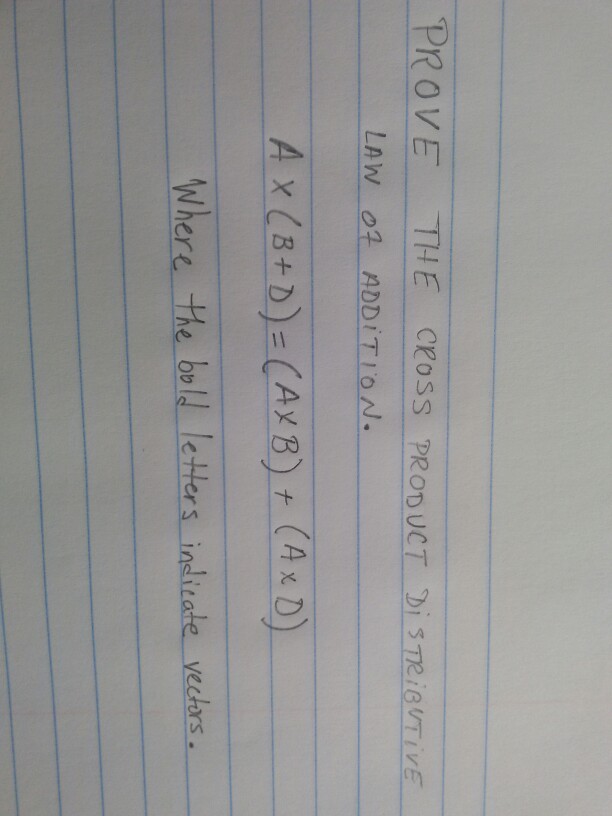 PROVE THE CROSS PRODUCT DiSTRiBUTiVE
LAW of ADDiTiON.
A x (B + D) = (A x B) + (A x D)
Where the bold letters indicate vectors.